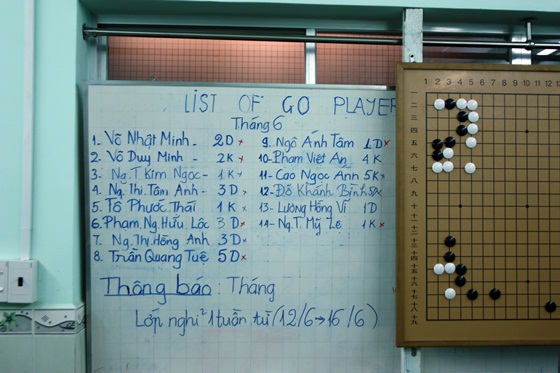 LIST OF GO PLAYER
Tháng 6
1. Võ Nhật Minh - 2D x
2. Võ Duy Minh - 2K x
3. Ng.T Kim Ngọc - 1K x
4. Ng.Thị.Tâm Anh - 3D x
5. Tô Phước Thái 1K x
6. Phạm.Ng.Hữu Lộc 3D x
7. Ng.Thị.Hồng Anh 3D x
8. Trần Quang Tuệ 5D x
9. Ngô Ánh Tâm 1D x
10- Phạm Việt An 4K
11- Cao Ngọc Anh 5K x
12- Đỗ Khánh Bình
13- Lương Hồng Vi 1D
14- Ng.T Mỹ Lệ 1K x
Thông báo: Tháng
Lớp nghỉ 1 tuần từ (12/6→16/6)
1 2 3 4 5 6 7 8 9 10 11
一
二
三
四
五
六
七
八
九
十